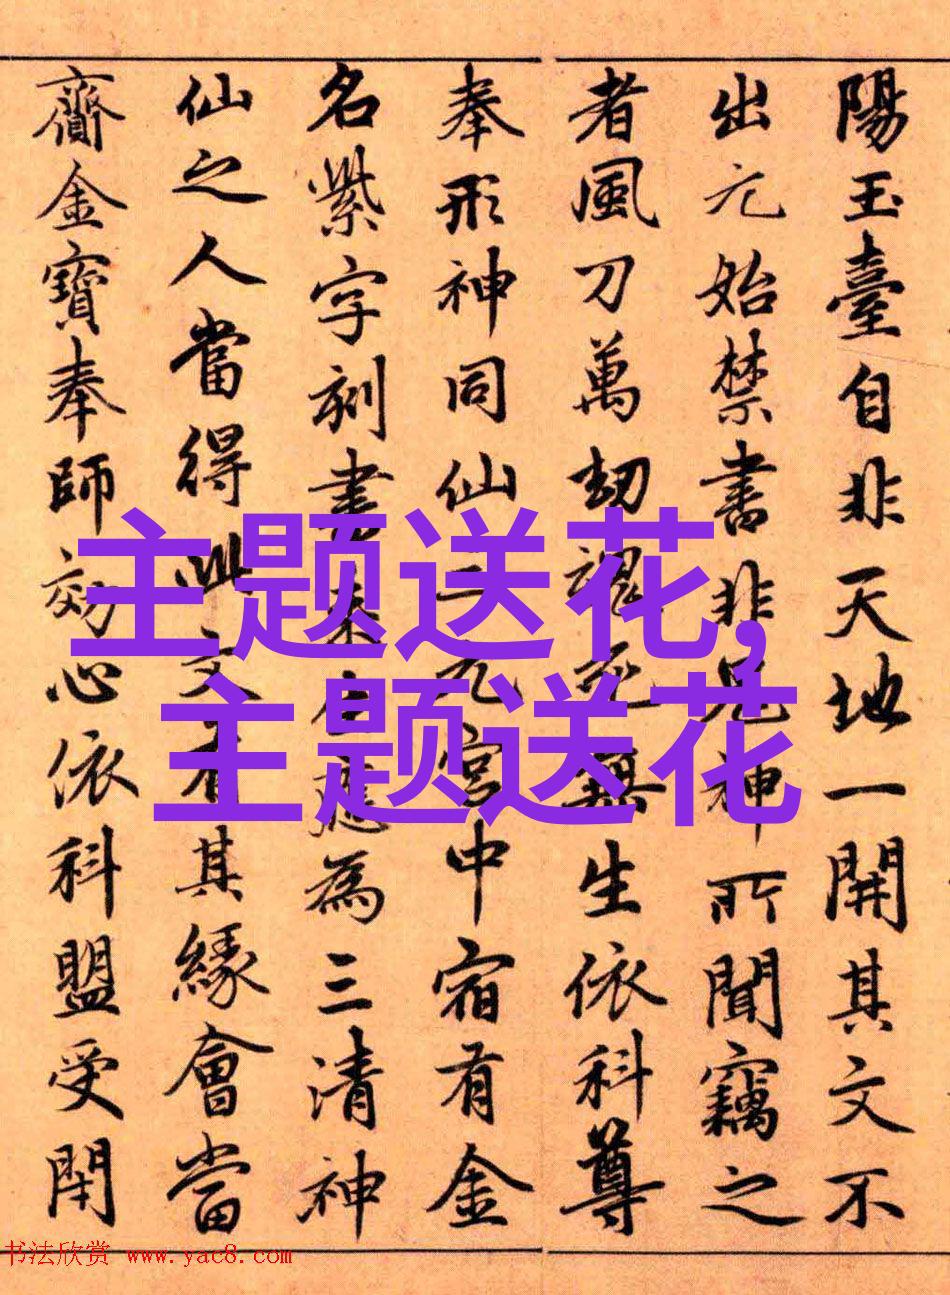 陽玉臺自非天地一開其文不
出元始禁書非鬼神所聞竊之
者風刀萬劫無生依科尊
奉形神同仙元宮中宿有金
名紫字刻書來生應為三清神
仙之人當得此文有其緣會當
齎金寶奉師効心依科盟受閇
主题送花,
主题送花
书法欣赏 www.yac8.com